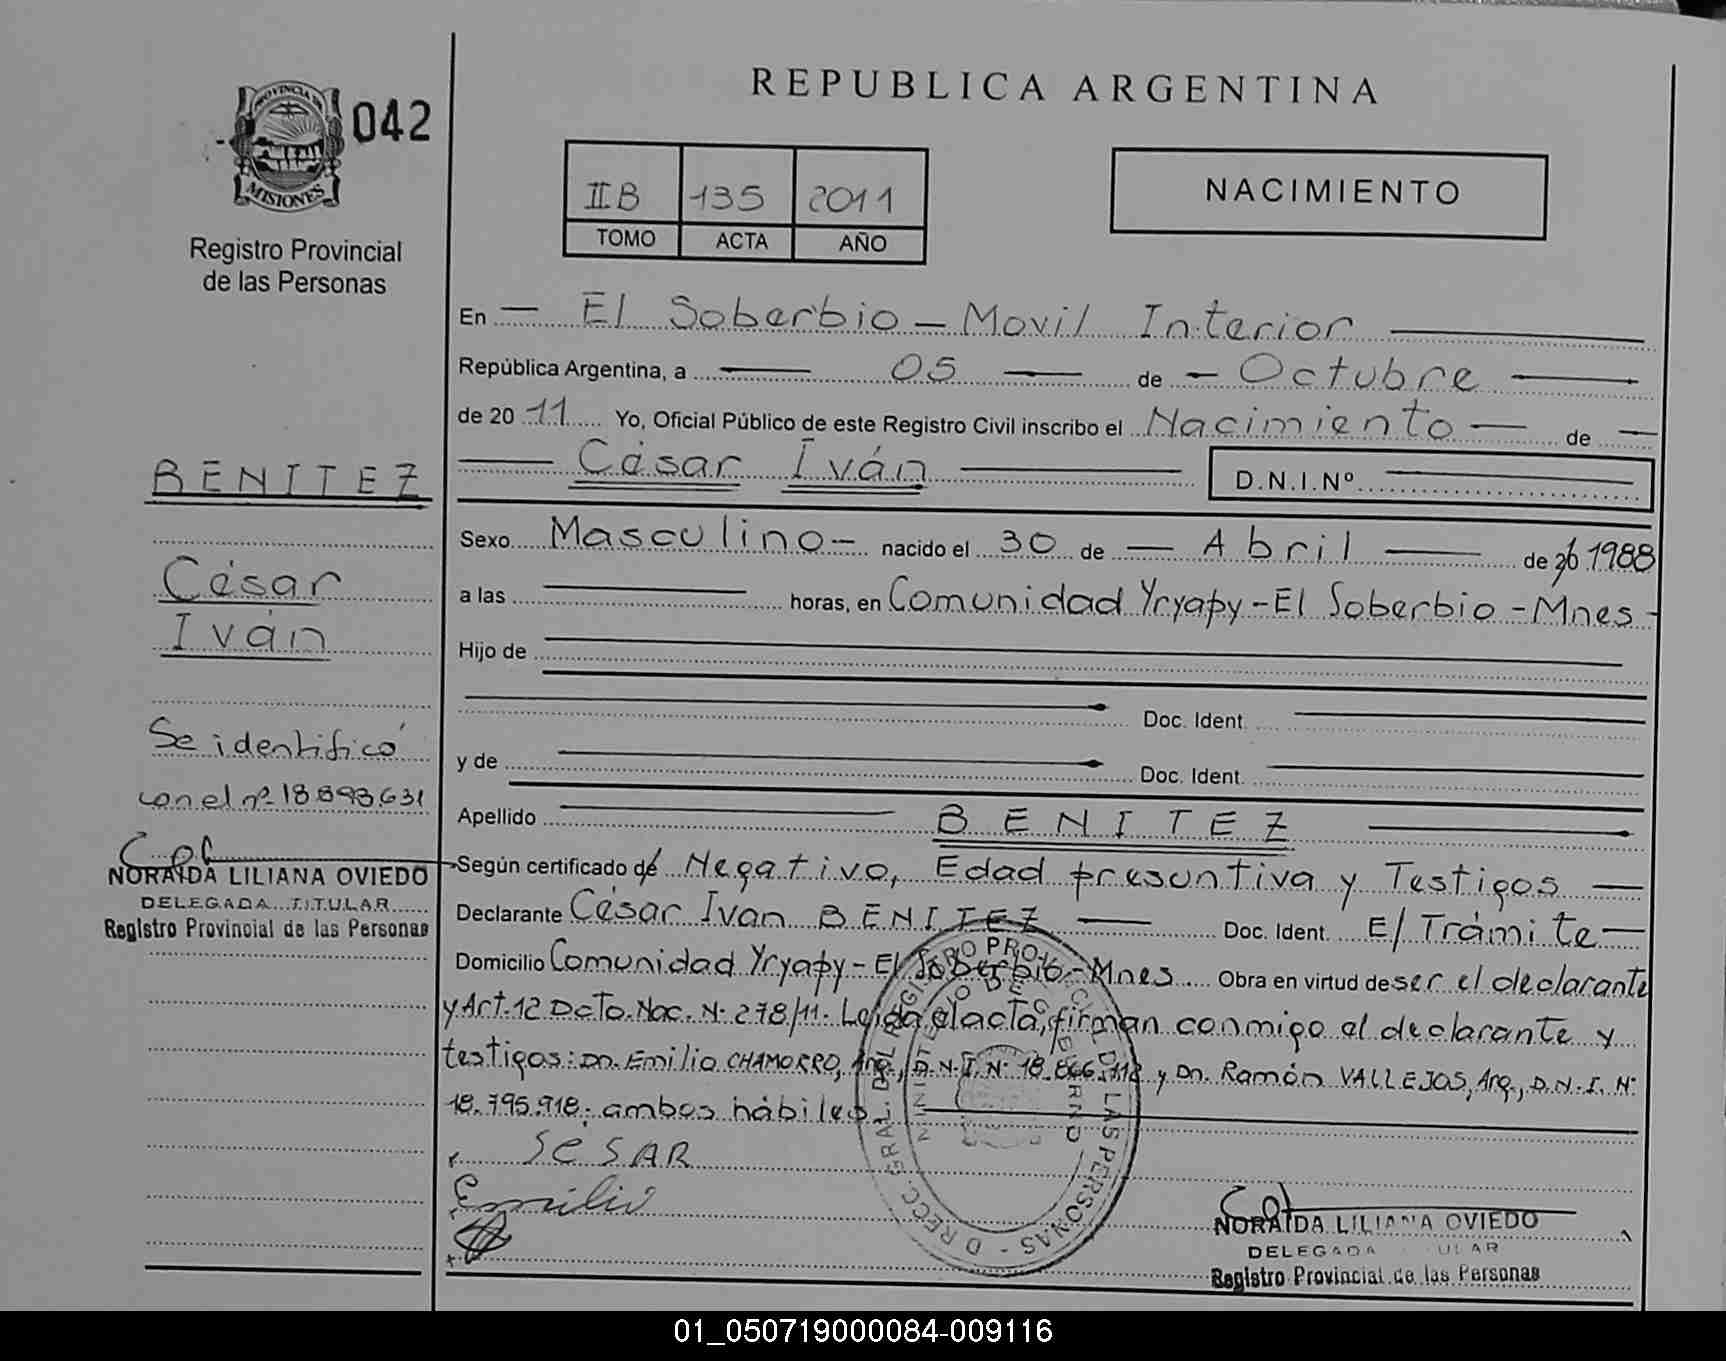 REPUBLICA ARGENTINA
PROVINCIA DE
MISIONES
042
Registro Provincial
de las Personas
II B 135 2011
TOMO ACTA AÑO
NACIMIENTO
En — El Soberbio — Movil Interior —
República Argentina, a — 05 — de — Octubre —
de 20 11 Yo, Oficial Público de este Registro Civil inscribo el Nacimiento — de —
— César Iván — D.N.I.Nº —
Sexo Masculino — nacido el 30 de — Abril — de 20 1988
a las — horas, en Comunidad Yryapy - El Soberbio - Mnes -
Hijo de —
Doc. Ident. —
y de — Doc. Ident. —
Apellido — BENITEZ —
Según certificado de Negativo, Edad presuntiva y Testigos —
Declarante César Ivan BENITEZ — Doc. Ident. E/Trámite —
Domicilio Comunidad Yryapy - El Soberbio - Mnes Obra en virtud de ser el declarante
y Art. 12 Dcto. Nac. N· 278/11. Leida el acta, firman conmigo el declarante y
testigos: Dn. Emilio CHAMORRO, Arg., D.N.I. N· 18.866.112 y Dn. Ramón VALLEJOS, Arg., D.N.I. N·
18.795.918; ambos hábiles.
SESAR
Emilio
NORAIDA LILIANA OVIEDO
DELEGADA TITULAR
Registro Provincial de las Personas
BENITEZ
César
Iván
Se identificó
con el nº 18.893.631
NORAIDA LILIANA OVIEDO
DELEGADA TITULAR
Registro Provincial de las Personas
DIRECC. GRAL. DEL REGISTRO PROVINCIAL DE LAS PERSONAS
MINISTERIO DE GOBIERNO
01_050719000084-009116